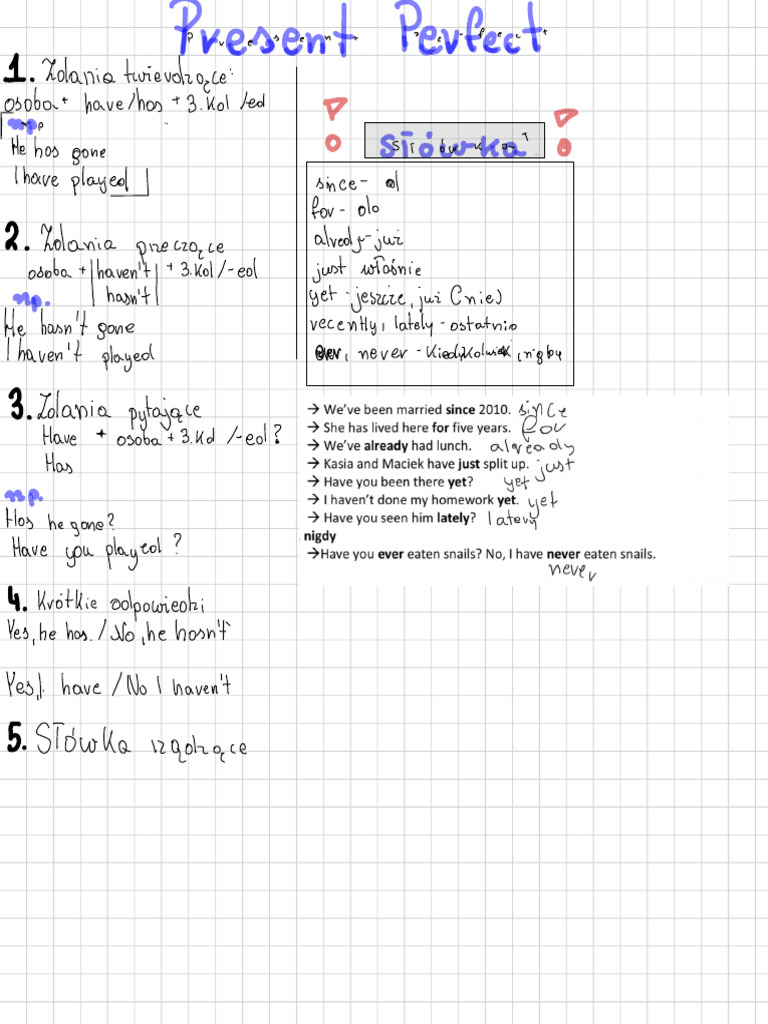 Present Perfect
1. Zdania twierdzące:
osoba + have/has + 3.kol /ed
np.
He has gone
I have played
2. Zdania przeczące
osoba + haven't + 3.kol/-ed
hasn't
np.
He hasn't gone
I haven't played
3. Zdania pytające
Have + osoba + 3.kol /-ed?
Has
np.
Has he gone?
Have you played?
4. Krótkie odpowiedzi
Yes, he has. / No, he hasn't
Yes, I have / No I haven't
5. Słówka rządzące
Słówka
since - od
for - do
already - już
just właśnie
yet - jeszcze, już (nie)
recently, lately - ostatnio
ever, never - kiedykolwiek, nigdy
→ We've been married since 2010. since
→ She has lived here for five years. for
→ We've already had lunch. already
→ Kasia and Maciek have just split up. just
→ Have you been there yet? yet
→ I haven't done my homework yet. yet
→ Have you seen him lately? lately
nigdy
→Have you ever eaten snails? No, I have never eaten snails.
never